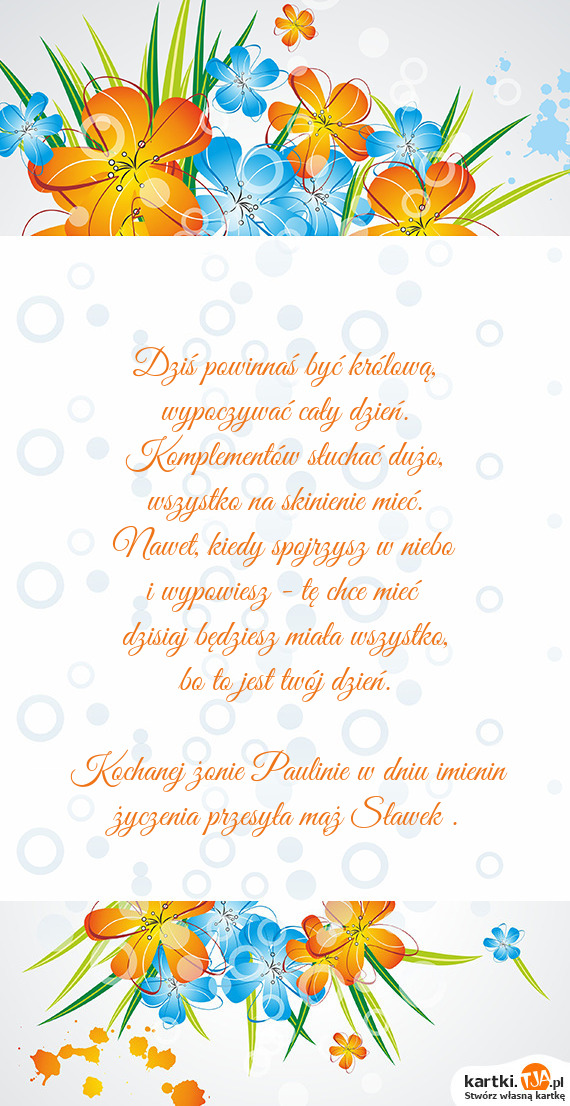 Dziś powinnaś być królową,
wypoczywać cały dzień.
Komplementów słuchać dużo,
wszystko na skinienie mieć.
Nawet, kiedy spojrzysz w niebo
i wypowiesz - tę chce mieć
dzisiaj będziesz miała wszystko,
bo to jest twój dzień.
Kochanej żonie Paulinie w dniu imienin
życzenia przesyła mąż Sławek .
kartki.TJA.pl
Stwórz własną kartkę